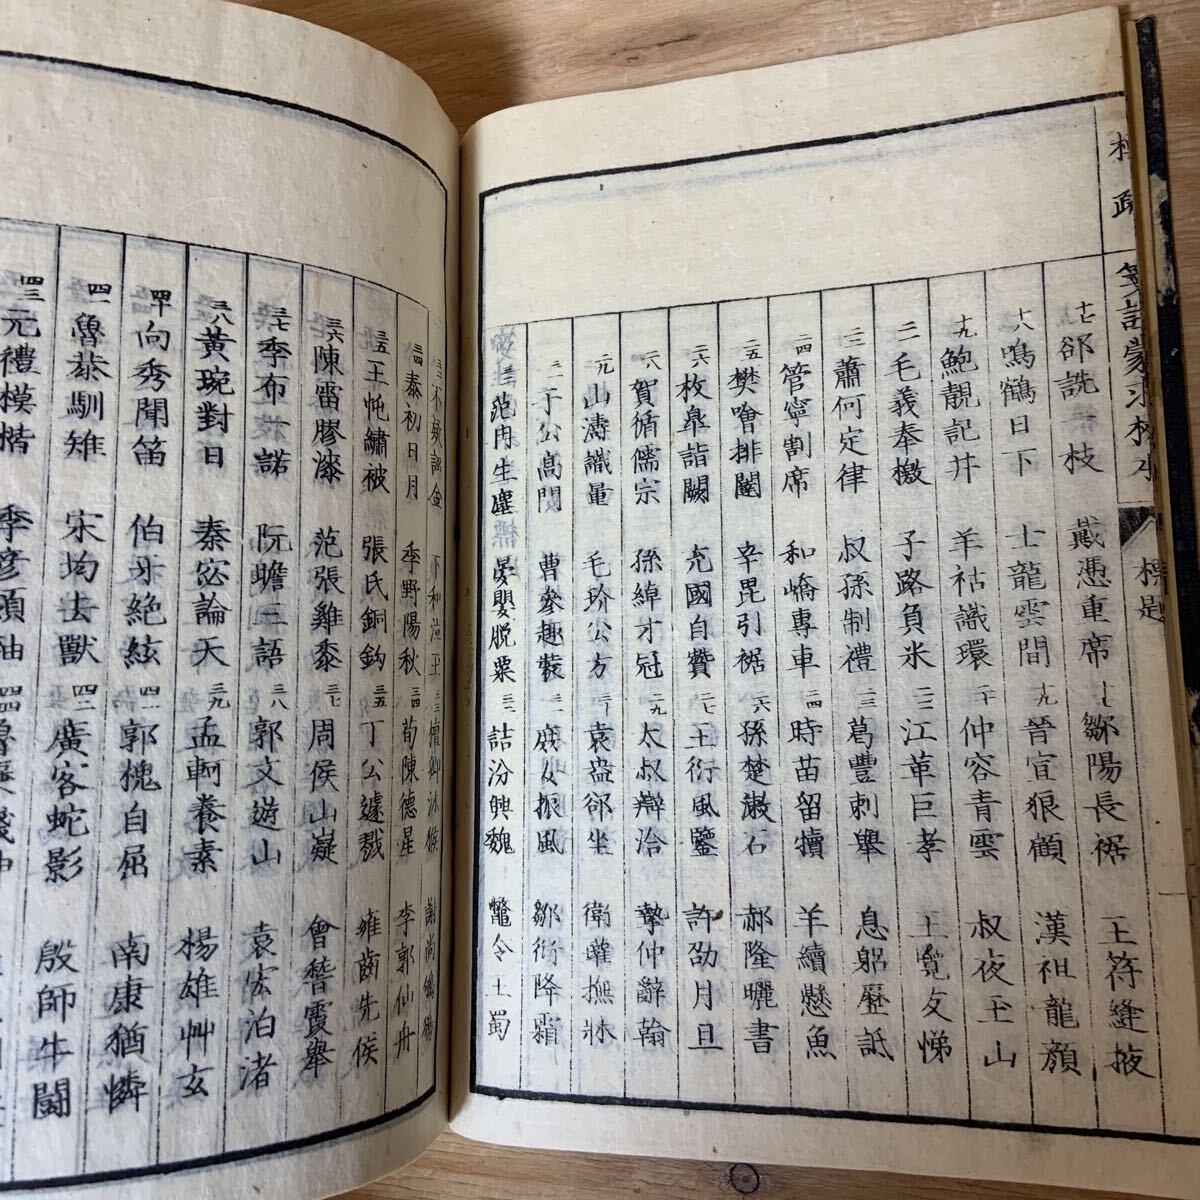 標疏 箋註蒙求校本
標題
十七郤詵一枝 戴憑重席 十七鄒陽長裾 王符縫掖
十八鳴鶴日下 士龍雲間 十九晉宣狼顧 漢祖龍顏
十九鮑靚記井 羊祜識環 二十仲容青雲 叔夜玉山
二一毛義奉檄 子路負米 二二江革巨孝 王覽友悌
二三蕭何定律 叔孫制禮 二三葛豐刺舉 息躬歷詆
二四管寧割席 和嶠專車 二四時苗留犢 羊續懸魚
二五樊噲排闥 辛毘引裾 二六孫楚漱石 郝隆曬書
二六枚皐詣闕 充國自贊 二七王衍風鑒 許劭月旦
二八賀循儒宗 孫綽才冠 二九太叔辯洽 摯仲辭翰
二九山濤識量 毛玠公方 袁盎郤坐 衛瓘撫牀
三一于公高門 曹參趣裝 三一庶女振風 鄒衍降霜
范冉生塵 晏嬰脫粟 三二詰汾興魏 鼈令王蜀
不疑誣金 卞和泣玉 三三檀卿沐猴 謝尚鴝鵒
三四泰初日月 季野陽秋 三四荀陳德星 李郭仙舟
三五王忳繡被 張氏銅鈎 三五丁公遽戮 雍齒先侯
三六陳雷膠漆 范張雞黍 三七周侯山嶷 會嵆霞舉
三七季布一諾 阮瞻三語 三八郭文遊山 袁宏泊渚
三八黃琬對日 秦宓論天 三九孟軻養素 楊雄艸玄
四十向秀聞笛 伯牙絶絃 四一郭槐自屈 南康猶憐
四一魯恭馴雉 宋均去獸 四二廣客蛇影 殷師牛鬪
四三元禮模楷 季彦領袖